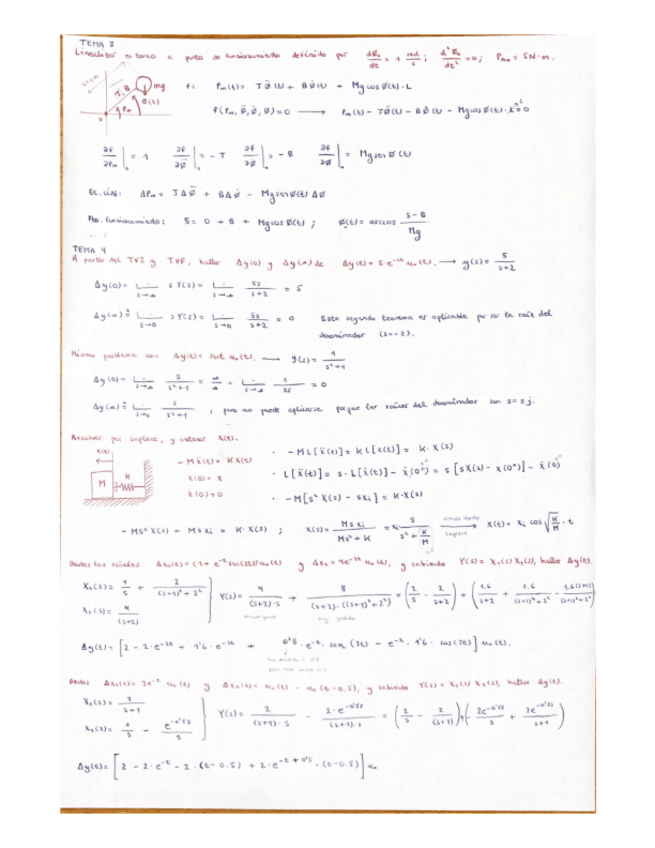 TEMA 3
Linealizar en torno a punto de funcionamiento definido por dØ₀/dt = 1 rad/s ; d²Ø₀/dt² = 0 ; Pm₀ = 5N·m.
f: Pm(t) = JØ̈(t) + BØ̇(t) + Mg cos Ø(t)·L
J, B mg
Ø(t)
Pm
f(Pm, Ø̈, Ø̇, Ø) = 0 ⟶ Pm(t) - JØ̈(t) - BØ̇(t) - Mg cos Ø(t)·L = 0
∂f/∂Pm |₀ = 1 ∂f/∂Ø̈ |₀ = -J ∂f/∂Ø̇ |₀ = -B ∂f/∂Ø |₀ = Mg sen Ø(t)
EC. LIN: ΔPm = JΔØ̈ + BΔØ̇ - Mg sen Ø(t) ΔØ
Pto. funcionamiento: 5 = 0 + B + Mg cos Ø(t) ; Ø(t) = arccos (5-B)/Mg
TEMA 4
A partir del TVI y TVF, hallar Δy(0) y Δy(∞) de Δy(t) = 5·e^-2t u₀(t). ⟶ y(s) = 5/(s+2)
Δy(0) = Lim s→∞ s Y(s) = Lim s→∞ 5s/(s+2) = 5
Δy(∞) = Lim s→0 s Y(s) = Lim s→0 5s/(s+2) = 0 Este segundo teorema es aplicable por ser la raíz del
denominador (s=-2).
Mismo problema con Δy(t) = sent u₀(t). ⟶ y(s) = 1/(s²+1)
Δy(0) = Lim s→∞ s/(s²+1) = ∞/∞ = Lim s→∞ 1/2s = 0
Δy(∞) = Lim s→0 s/(s²+1) , pero no puede aplicarse porque las raíces del denominador son s=±j.
Resolver por Laplace, y obtener X(t).
X(t)
M K
- M Ẍ(t) = K X(t)
X(0) = X
Ẋ(0) = 0
· - M L[Ẍ(t)] = K L[X(t)] = K·X(s)
· L[Ẍ(t)] = s·L[Ẋ(t)] - Ẋ(0⁺) = s[sX(s) - X(0⁺)] - Ẋ(0)
· - M[s² X(s) - sXi] = K·X(s)
- Ms² X(s) + Ms Xi = K·X(s) ; X(s) = MsXi/(Ms²+K) = Xi s/(s²+K/M) ⟶ X(t) = Xi cos √(K/M)·t
Laplace
Dadas las señales Δx₁(t) = (1+e^-t sen(2t))u₀(t) y Δx₂ = 4e^-2t u₀(t), y sabiendo Y(s) = X₁(s) X₂(s), hallar Δy(t).
X₁(s) = 1/s + 2/((s+1)²+2²)
X₂(s) = 4/(s+2)
Y(s) = 4/((s+2)·s) + 8/((s+2)·((s+1)²+2²)) = (2/s - 2/(s+2)) + (1,6/(s+2) + 1,6/((s+1)²+2²) - 1,6(s+1)/((s+1)²+2²))
Δy(t) = [2 - 2·e^-2t + 1'6·e^-2t + 0'8·e^-t·sen(2t) - e^-t·1'6·cos(2t)] u₀(t).
Dadas Δx₁(t) = 2e^-t u₀(t) y Δx₂(t) = u₀(t) - u₀(t-0.5), y sabiendo Y(s) = X₁(s) X₂(s), hallar Δy(t).
X₁(s) = 2/(s+1)
X₂(s) = 1/s - e^-0'5s/s
Y(s) = 2/((s+1)·s) - 2·e^-0'5s/((s+1)·s) = (2/s - 2/(s+1)) + (- 2e^-0'5s/s + 2e^-0'5s/(s+1))
Δy(t) = [2 - 2·e^-t - 2·(t-0.5) + 2·e^-t+0'5·(t-0.5)] u₀